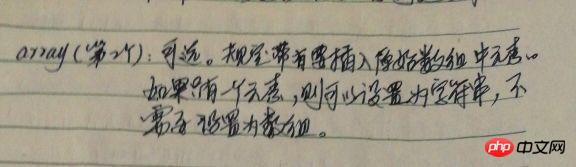 array(第2个):可选。规定带有要插入原始数组中元素。
如果只有一个元素,则可以设置为字符串,不
需要设置为数组。
php 中文网